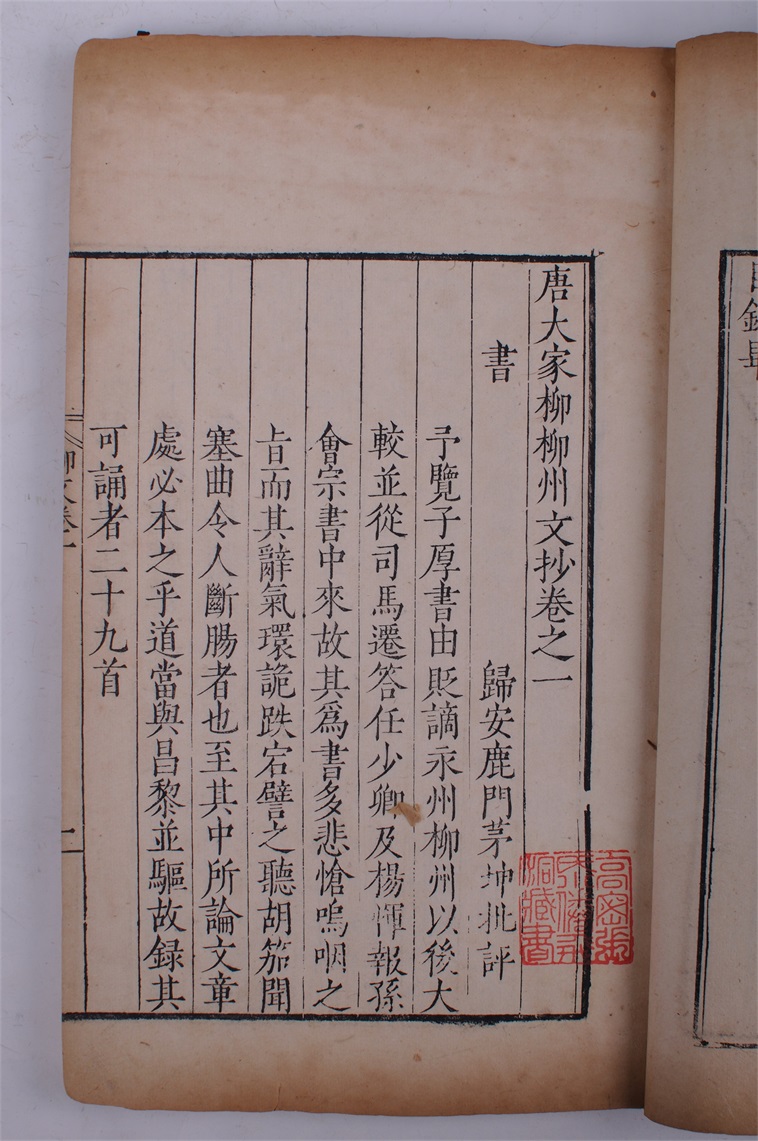 唐大家柳柳州文抄卷之一
書
歸安鹿門茅坤批評
予覽子厚書由貶謫永州柳州以後大
較並從司馬遷答任少卿及楊惲報孫
會宗書中來故其為書多悲愴嗚咽之
旨而其辭氣環詭跌宕譬之聽胡笳聞
塞曲令人斷腸者也至其中所論文章
處必本之乎道當與昌黎並驅故録其
可誦者二十九首